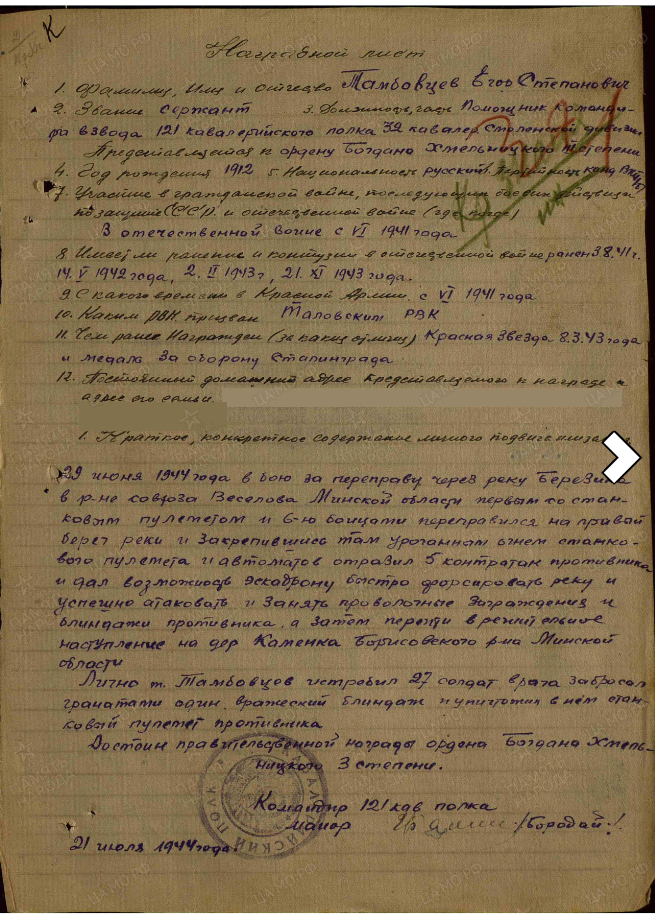 К
Наградной лист
1. Фамилия, Имя и отчество Тамбовцев Егор Степанович
2. Звание сержант 3. Должность, часть Помощник команди-
ра взвода 121 кавалерийского полка 32 кавалер Смоленской дивизии
Представляется к ордену Богдана Хмельницкого 3 степени
4. Год рождения 1912 5. Национальность русский 6. Партийность канд ВКП(б)
7. Участие в гражданской войне, последующих боевых действиях
по защите СССР и отечественной войне (где, когда)
В отечественной воине с VI 1941 года
8. Имеет ли ранения и контузии в отечественной войне ранен 3.8.41 г.
14. V 1942 года, 2. II 1943 г, 21. XI 1943 года.
9. С какого времени в Красной Армии с VI 1941 года
10. Каким РВК призван Таловским РВК
11. Чем ранее награжден (за какие отличия) Красная Звезда 8.3.43 года
и медаль За оборону Сталинграда
12. Постоянный домашний адрес представляемого к награде и
адрес его семьи.
1. Краткое, конкретное содержание личного подвига или заслуг
29 июня 1944 года в бою за переправу через реку Березина
в р-не совхоза Веселова Минской области первым со стан-
ковым пулеметом и 6-ю бойцами переправился на правый
берег реки и закрепившись там ураганным огнем станко-
вого пулемета и автоматов отразил 5 контратак противника
и дал возможность эскадрону быстро форсировать реку и
успешно атаковать и занять проволочные заграждения и
блиндажи противника, а затем перейти в решительное
наступление на дер Каменка Борисовского р-на Минской
области
Лично т. Тамбовцев истребил 27 солдат врага забросал
гранатами один вражеский блиндаж и уничтожил в нем стан-
ковый пулемет противника
Достоин правительственной награды ордена Богдана Хмель-
ницкого 3 степени.
Командир 121 кав полка
майор /Бородай/.
21 июля 1944 года.